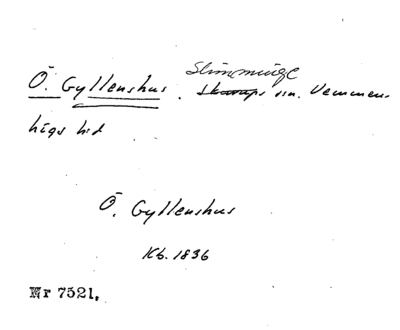 Ö. Gyllenshus. Slimminge Skurups sn. Vemmen-
högs hd
Ö. Gyllenshus
Kb. 1836
Nr 7521.